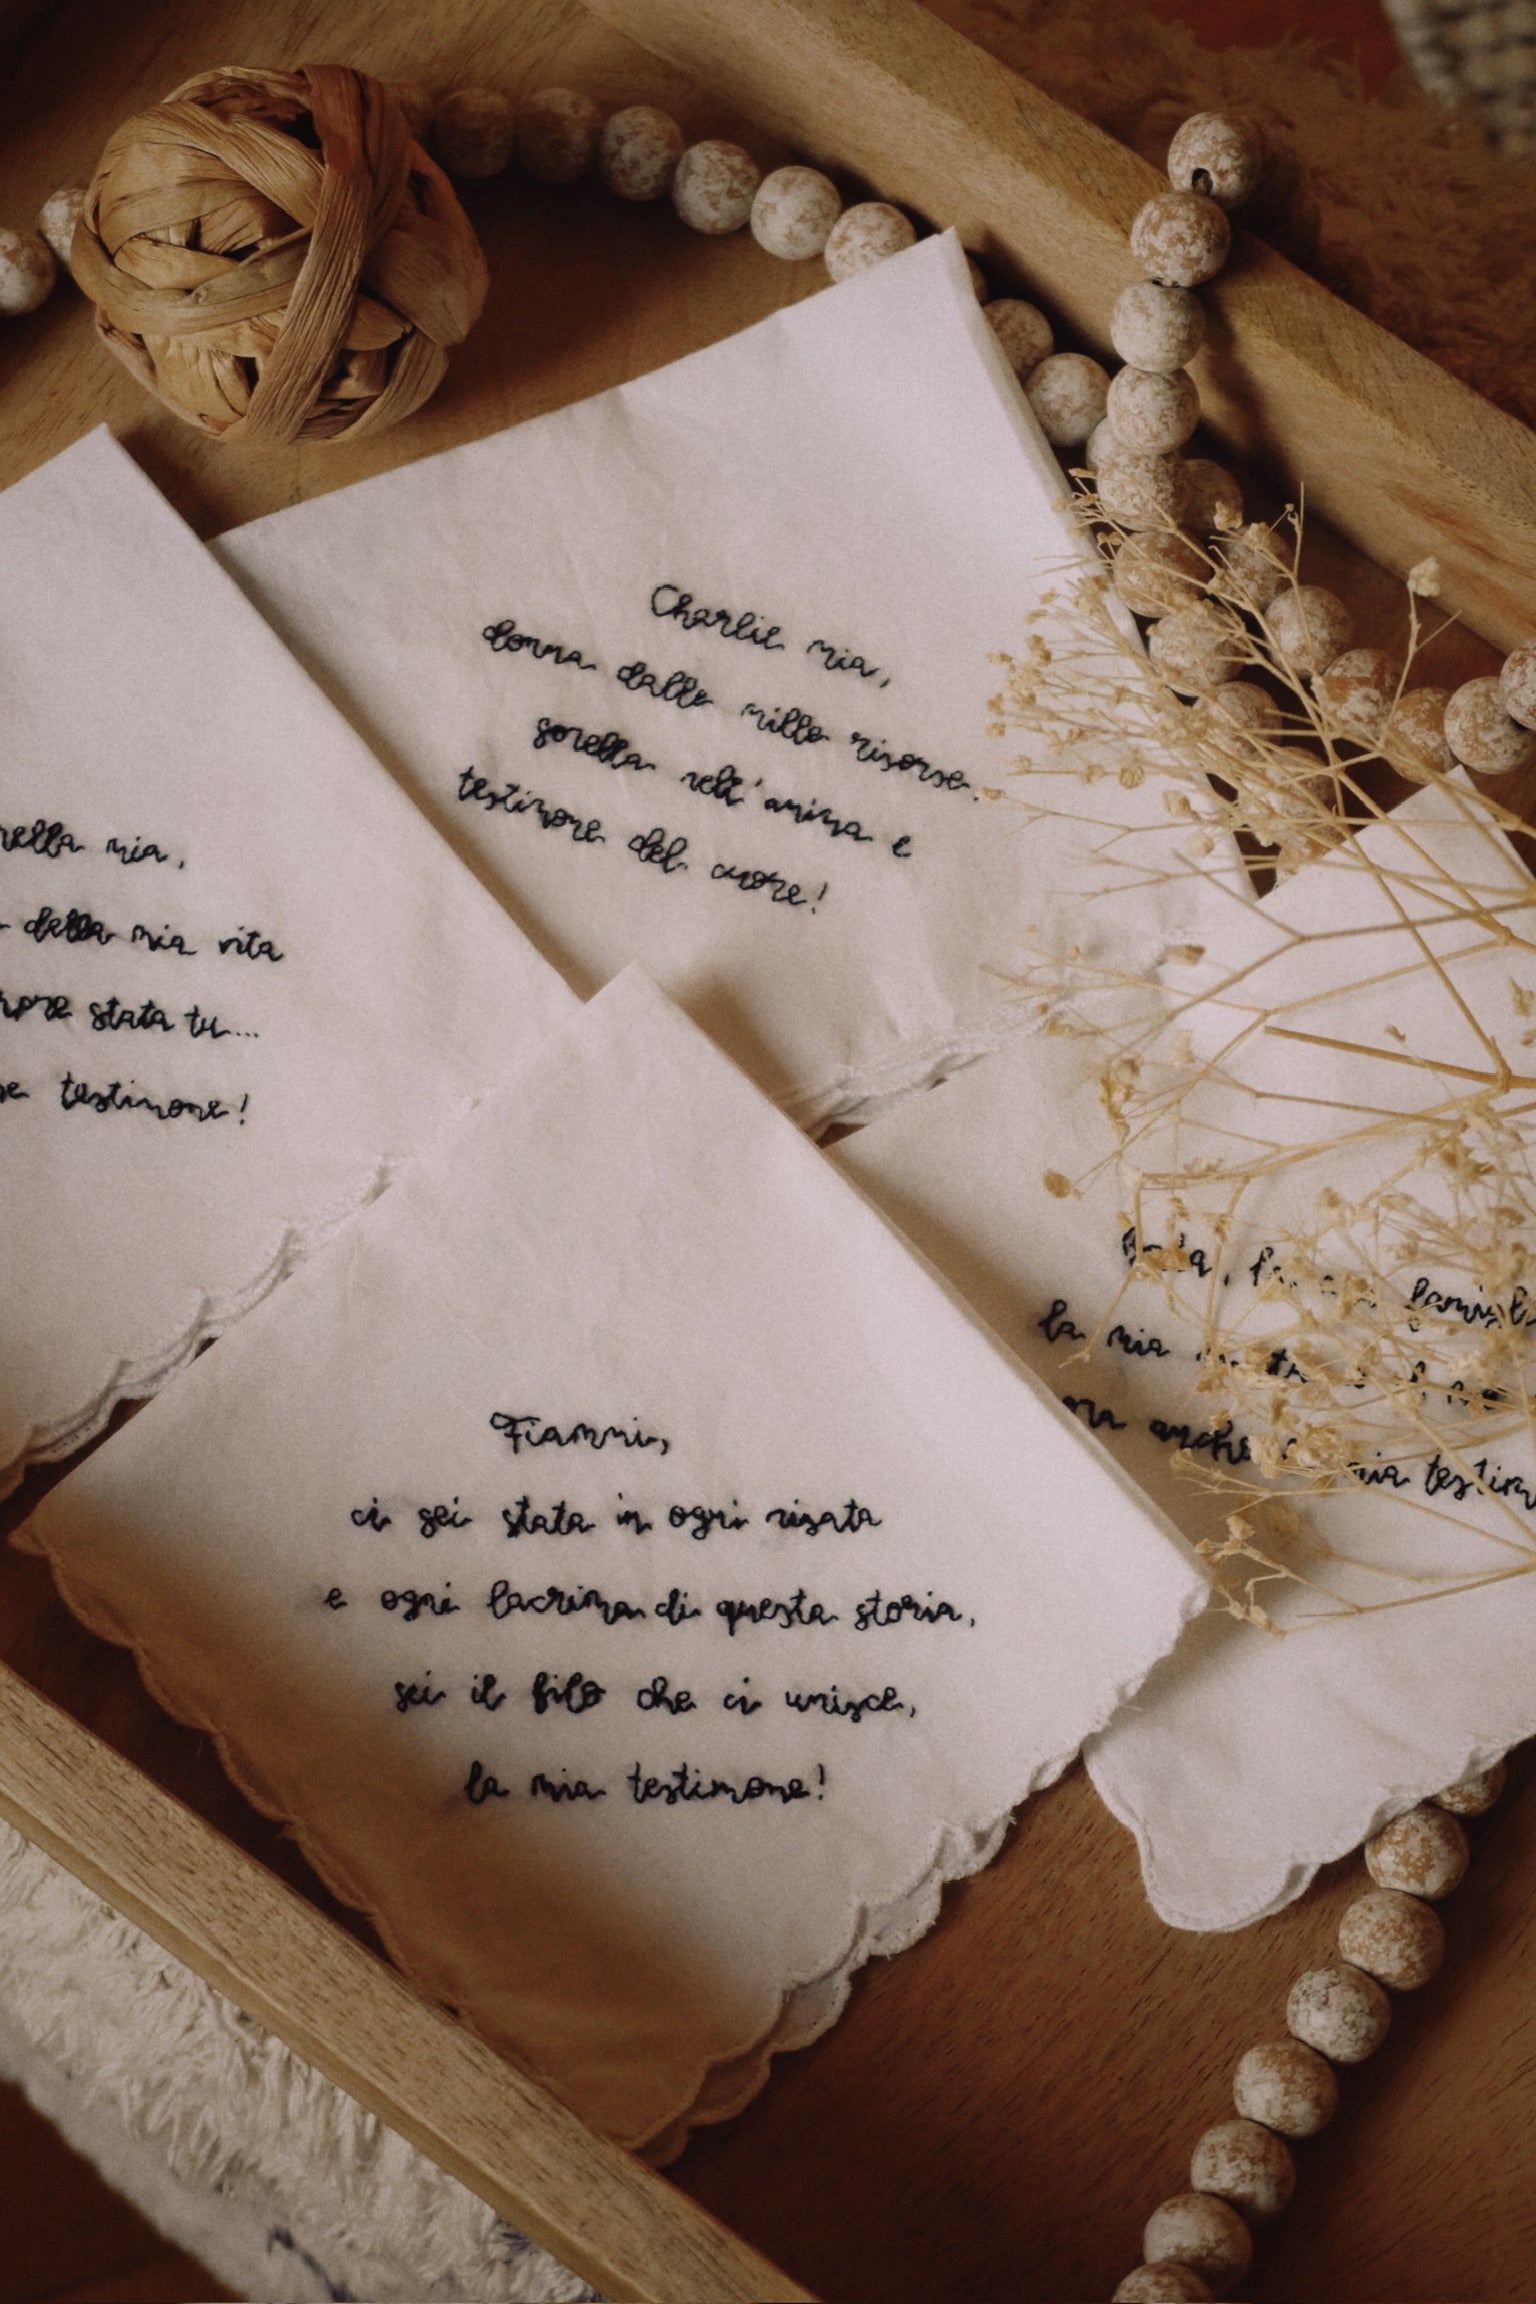 Charlie mia,
donna dalle mille risorse.
sorella nell'anima e
testimone del cuore!
mia,
della mia vita
stata tu...
testimone!
Fiammi,
ci sei stata in ogni risata
e ogni lacrima di questa storia,
sei il filo che ci unisce,
la mia testimone!
la mia
anche mia